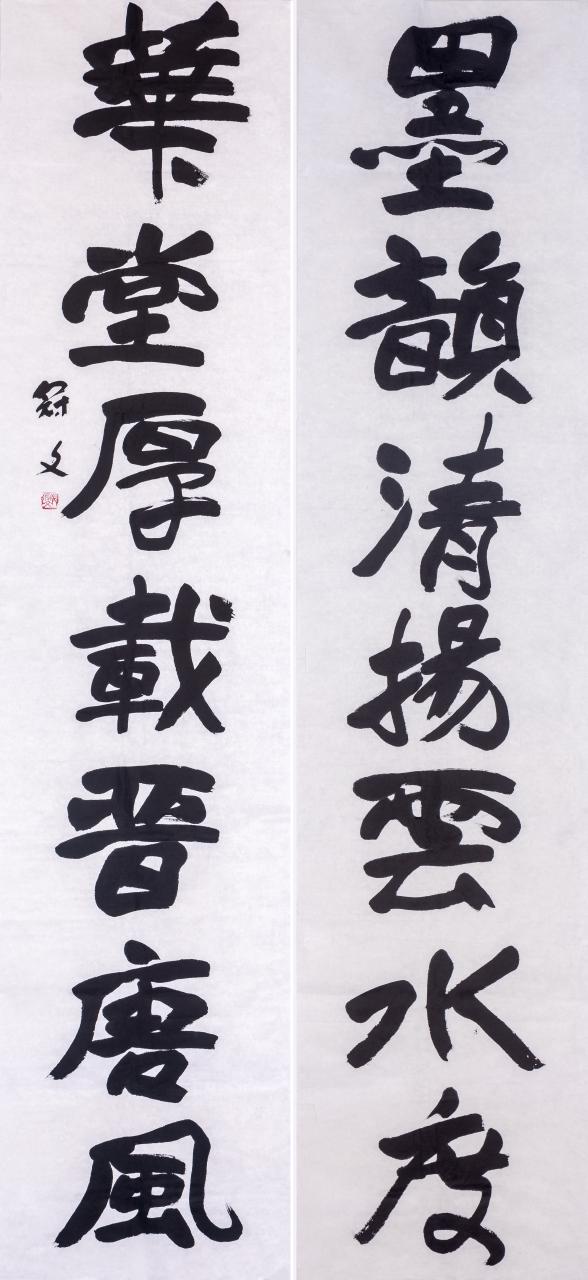 墨韻清揚雲水度
華堂厚載晋唐風
冠文